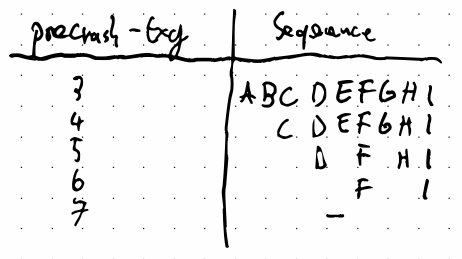 precrash-txg Sequence
3 A B C D E F G H I
4 C D E F G H I
5 D F H I
6 F I
7 -